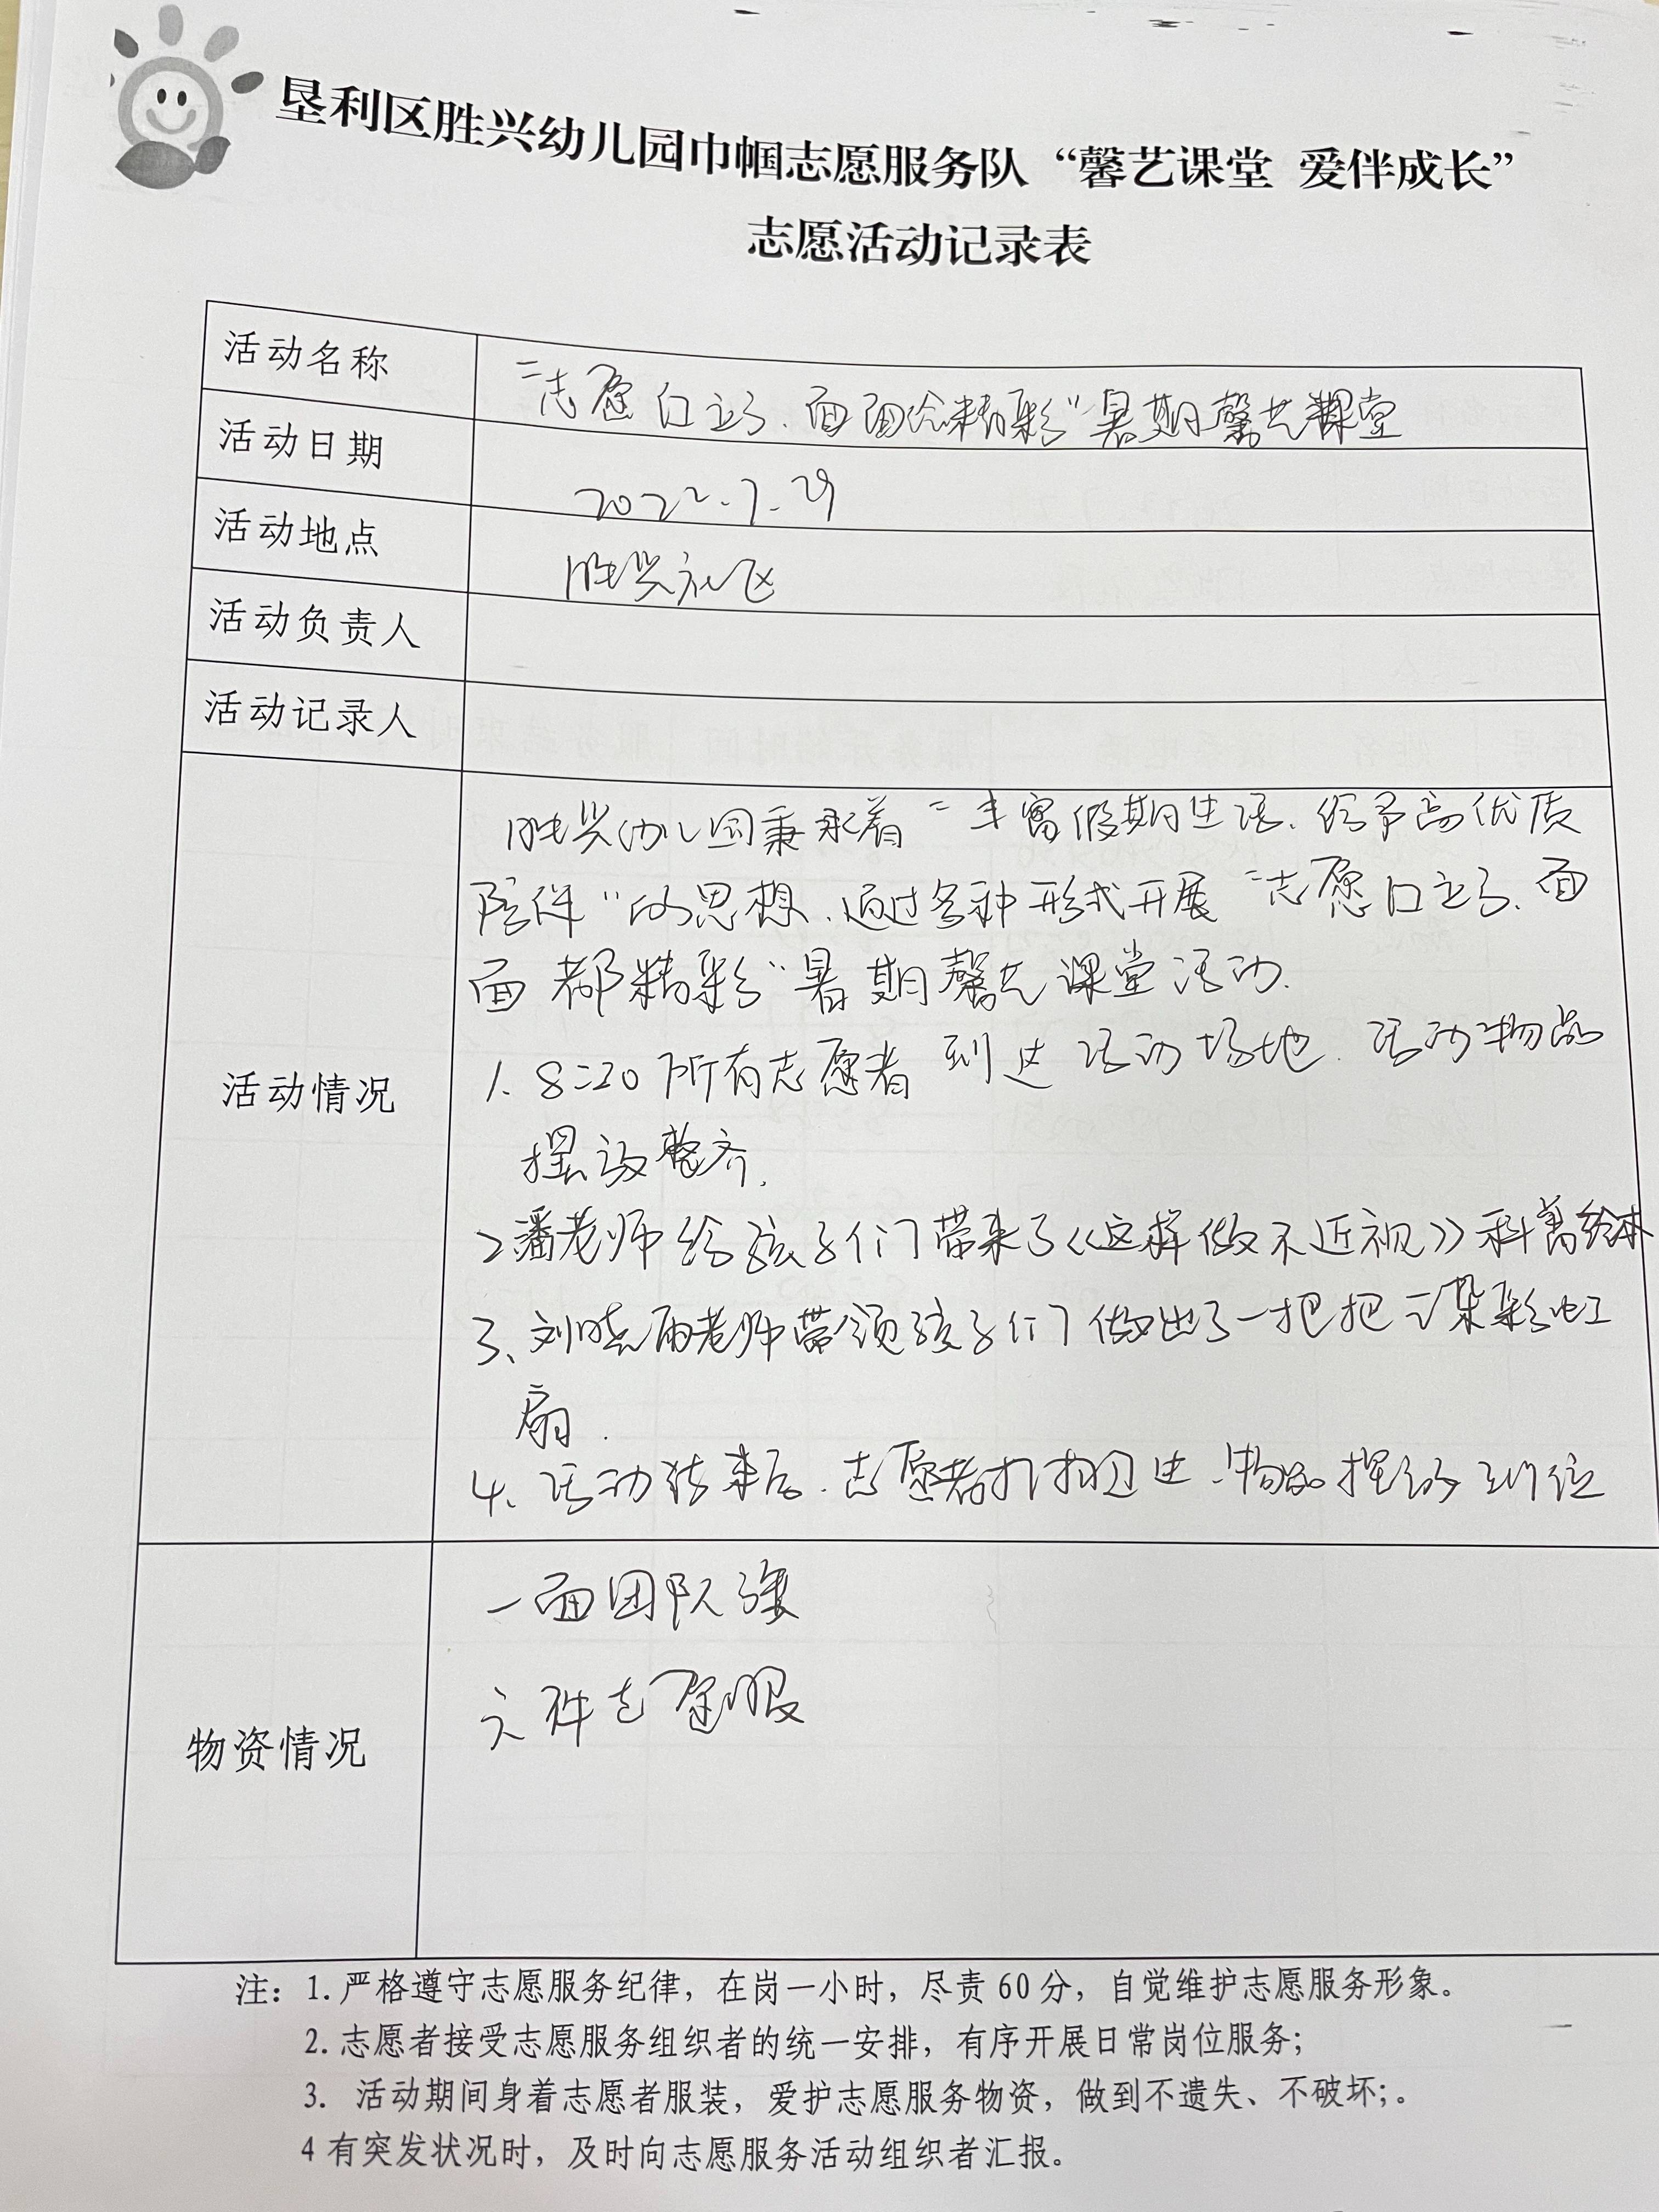 垦利区胜兴幼儿园巾帼志愿服务队“馨艺课堂 爱伴成长”
志愿活动记录表
活动名称
“志愿口立了、面面绘精彩”暑期馨艺课堂
活动日期
2022.7.29
活动地点
胜兴社区
活动负责人
活动记录人
活动情况
胜兴幼儿园秉承着“丰富假期生活、给予高优质
陪伴”的思想、通过各种形式开展“志愿口立了、面
面都精彩”暑期馨艺课堂活动.
1. 8:20所有志愿者到达活动场地. 活动物品
摆放整齐.
2潘老师给孩子们带来了《这样做不近视》科普绘本
3、刘晓雨老师带领孩子们做出了一把把渲染彩虹
扇.
4、活动结束后.志愿者打扫卫生.物品摆放到位
物资情况
一面团队旗
六件志愿服
注：1.严格遵守志愿服务纪律，在岗一小时，尽责60分，自觉维护志愿服务形象。
2.志愿者接受志愿服务组织者的统一安排，有序开展日常岗位服务；
3. 活动期间身着志愿者服装，爱护志愿服务物资，做到不遗失、不破坏；。
4有突发状况时，及时向志愿服务活动组织者汇报。